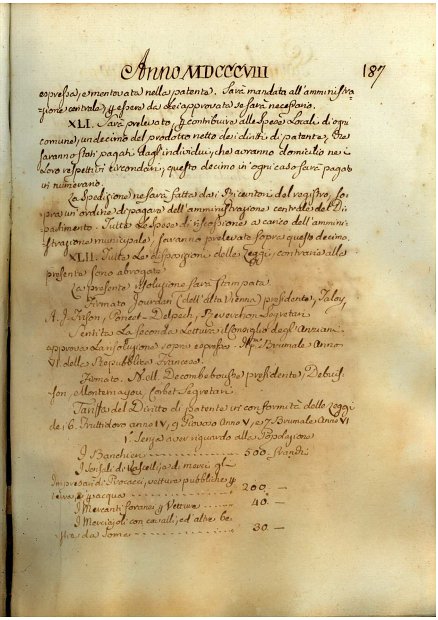 Anno MDCCCVIII 187
espressa, e mentovata nella patente. Sarà mandata all'amministra-
zione centrale, p essere da lei approvata se sarà necessario.
XLI. Sarà prelevato, p contribuire alle Spese Locali di ogni
comune, un decimo del prodotto netto dei diritti di patente, che
saranno stati pagati dagl'individui, che avranno domicilio nei
Loro respettivi circondari; questo decimo in ogni caso sarà pagato
in numerario
La Spedizione ne sarà fatta dai Ricevitori del registro, so-
pra un ordine di pagare dell'amministrazione centrale del Di-
partimento. Tutte Le Spese di riscossione a carico dell'ammini-
strazione municipale, saranno prelevate sopra questo decimo.
XLII. Tutte Le disposizioni delle Leggi contrarie alla
presente sono abrogate
La presente risoluzione sarà stampata
Firmato Jourdan (dell'alta Vienna) presidente, Talot,
A. J. Frison, Delpech, Segretari
Sentita La seconda Lettura il Consiglio degl'Anziani
approva La risoluzione sopra espressa. Brumale Anno
VI. della Repubblica Francese.
Firmato. Decombebousse presidente, Debuis-
son, Corbet Segretari.
Tariffa del Diritto di patente in conformità delle Leggi
de' 6. Fruttidoro anno IV, 9 Piovoso Anno V, e 7 Brumale Anno VI
1.° Senza aver riguardo alla Popolazione
I Banchieri 500. Franchi
I Sensali di Vascelli, e di merci, gl'
Impresari di Procacci, vetture pubbliche p
terra, e p acqua 200. —
I Mercanti foranei p Vetture 40. —
I Merciajoli con cavalli, ed altre be-
stie da Some 30. —